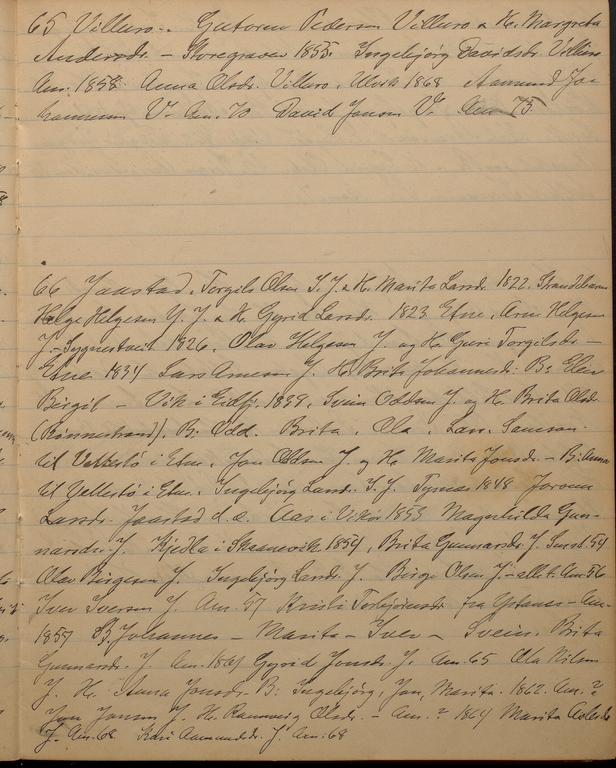 65 Villuro. Gutorm Pederson Villuro & H. Margreta
Andersdr. – Storegraven 1855. Ingebjörg Davidsdr. Villuro
Am. 1858. Anna Olsdr. Villuro, Ulvik 1868 Aamund Jo-
hannesen V– Am. 70 David Jonsen V. Am 75
66 Jaastad. Torgils Olsen S. J. & H. Marita Larsdr. 1822. Strandebarm
Helge Helgesen Y. J. & H. Gyrid Larsdr. 1823 Etne. Arne Helgesen
J. – Tygnestveit 1826. Olav Helgesen J. og H. Guri Torgilsdr. –
Etne 1834 Lars Arnesen J. H. Brita Johannesdr. B: Elen
Börgit – Vik i Eidfj. 1839. Svein Oddsen J. og H. Brita Olsdr.
(Rönnestrand). B: Odd. Brita. Ola. Lars. Samson.
til i Etne. Jon Oddsen J. og H. Marita Jonsdr. – B: Anna
til i Etne. Ingebjörg Larsdr. S. J. Tysnes 1848 Joronn
Larsdr. Jaastad d. e. Aas i Vikör 1853 Magnhilda Gun-
narsdr. J. Kjedla i Skaanevik 1854, Brita Gunnarsdr. J. 54
Olav Birgesen J. Ingebjörg Larsdr. J. Birge Olsen J. – alle t. Am. 56
Iver Iversen J. Am. 57 Kristi Torbjörnsdr. fra Ystanes – Am.
1857 B: Johannes – Marita – Iver – Svein. Brita
Gunnarsdr. J. Am. 1861 Gyrid Jonsdr. J. Am. 65 Ola Nilsen
J. H. Anna Jonsdr. B: Ingebjörg, Jon, Marita. 1862. Am. ?
Jon Jonsen J. H. Rannveig Olsdr. – Am. ? 1864 Marita
J. Am. 68 Kari Aamundsdr. J. Am. 68